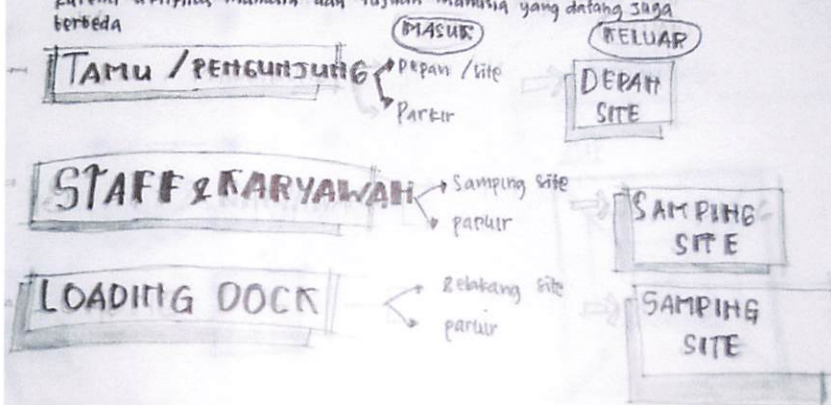 karena aktifitas manusia dan tujuan manusia yang datang juga
berbeda
MASUK
KELUAR
TAMU / PENGUNJUNG
Depan / site
Parkir
DEPAN
SITE
STAFF & KARYAWAN
Samping site
parkir
SAMPING
SITE
LOADING DOCK
Belakang site
parkir
SAMPING
SITE